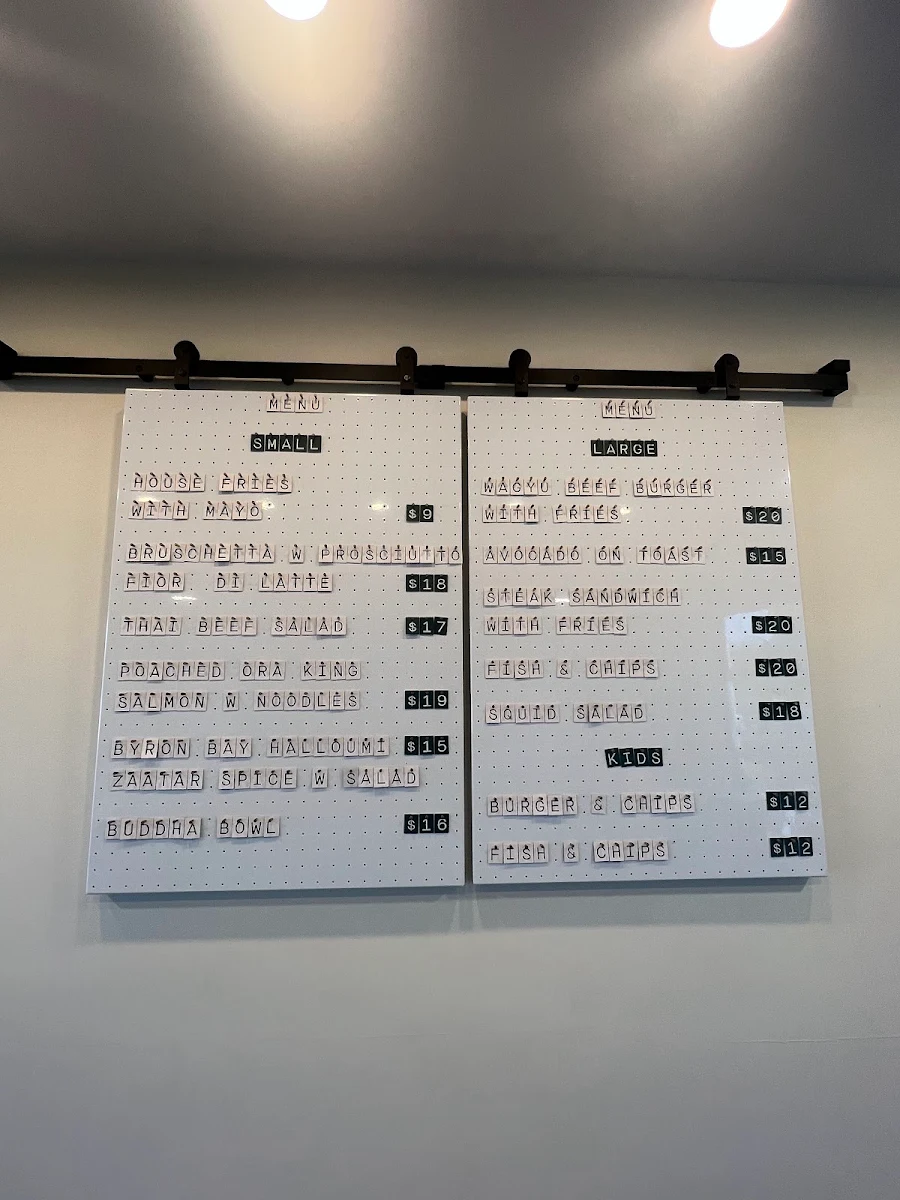 MENU
SMALL
HOUSE FRIES
WITH MAYO $9
BRUSCHETTA W PROSCIUTTO
FIOR DI LATTE $18
THAI BEEF SALAD $17
POACHED ORA KING
SALMON W NOODLES $19
BYRON BAY HALLOUMI $15
ZAATAR SPICE W SALAD
BUDDHA BOWL $16
MENU
LARGE
WAGYU BEEF BURGER
WITH FRIES $20
AVOCADO ON TOAST $15
STEAK SANDWICH
WITH FRIES $20
FISH & CHIPS $20
SQUID SALAD $18
KIDS
BURGER & CHIPS $12
FISH & CHIPS $12